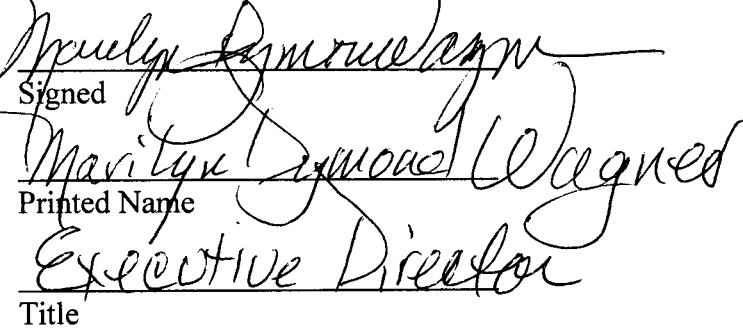 Marilyn Dymond Wagner
Signed
Marilyn Dymond Wagner
Printed Name
Executive Director
Title